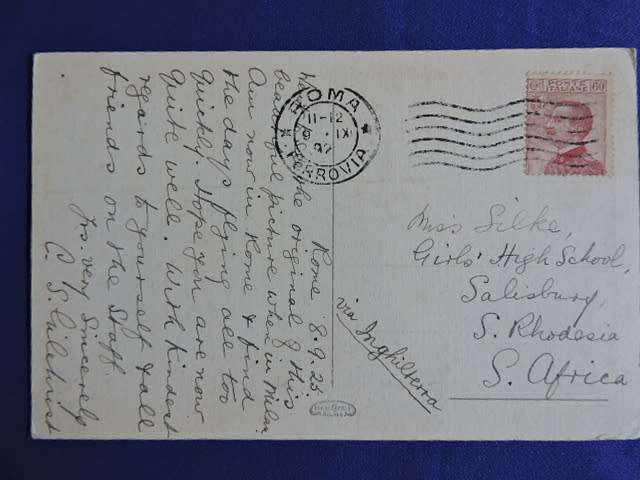 Rome 8.9.25
the original of this
beautiful picture when in Milan.
Am now in Rome & find
the days flying all too
quickly. Hope you are now
quite well. With kindest
regards to yourself & all
friends on the Staff.
Yrs. very sincerely
C. S. Gilchrist
ROMA
11-12
IX
FERROVIA
POSTE
ITALIANE
60
Miss Silke,
Girls' High School,
Salisbury,
S. Rhodesia
S. Africa
via Inghilterra